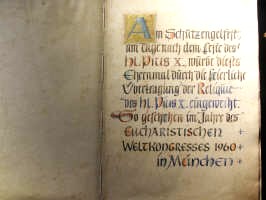 Am Schutzengelfest,
am Tage nach dem Feste des
hl. Pius X., wurde dieses
Ehrenmal durch die feierliche
Übertragung der Reliquie
des hl. Pius X. eingeweiht.
So geschehen im Jahre des
EUCHARISTISCHEN +
WELTKONGRESSES 1960 +
in München +